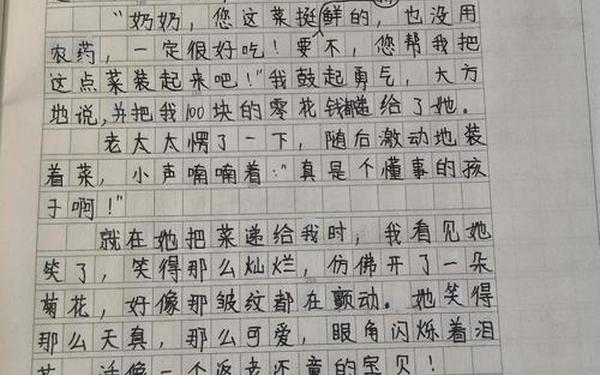 “奶奶，您这菜挺鲜的，也没用
农药，一定很好吃！要不，您帮我把
这点菜装起来吧！”我鼓起勇气，大方
地说，并把我100块的零花钱都递给了她。
老太太愣了一下，随后激动地装
着菜，小声喃喃着：“真是个懂事的孩
子啊！”
就在她把菜递给我时，我看见她
笑了，笑得那么灿烂，仿佛开了一朵
菊花，好像那皱纹都在颤动。她笑得
那么天真，那么可爱，眼角闪烁着泪
花，活像一个返老还童的宝贝！